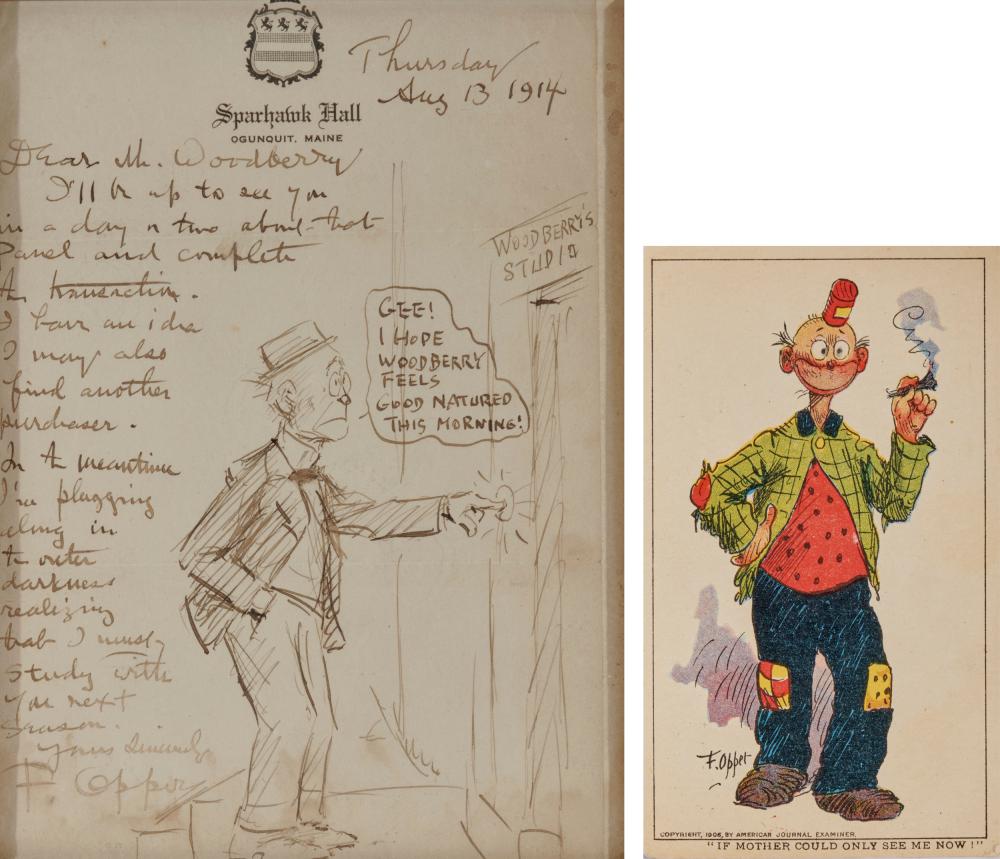 Thursday
Aug 13 1914
Sparhawk Hall
OGUNQUIT, MAINE
Dear Mr. Woodberry
I'll be up to see you
in a day or two about that
Panel and complete
the transaction.
I have an idea
I may also
find another
purchaser.
In the meantime
I'm plugging
along in
the outer
darkness
realizing
that I must
study with
you next
season.
Yours Sincerely
F Opper
WOODBERRY'S
STUDIO
GEE!
I HOPE
WOODBERRY
FEELS
GOOD NATURED
THIS MORNING!
F. Opper
COPYRIGHT, 1906, BY AMERICAN JOURNAL EXAMINER.
"IF MOTHER COULD ONLY SEE ME NOW!"